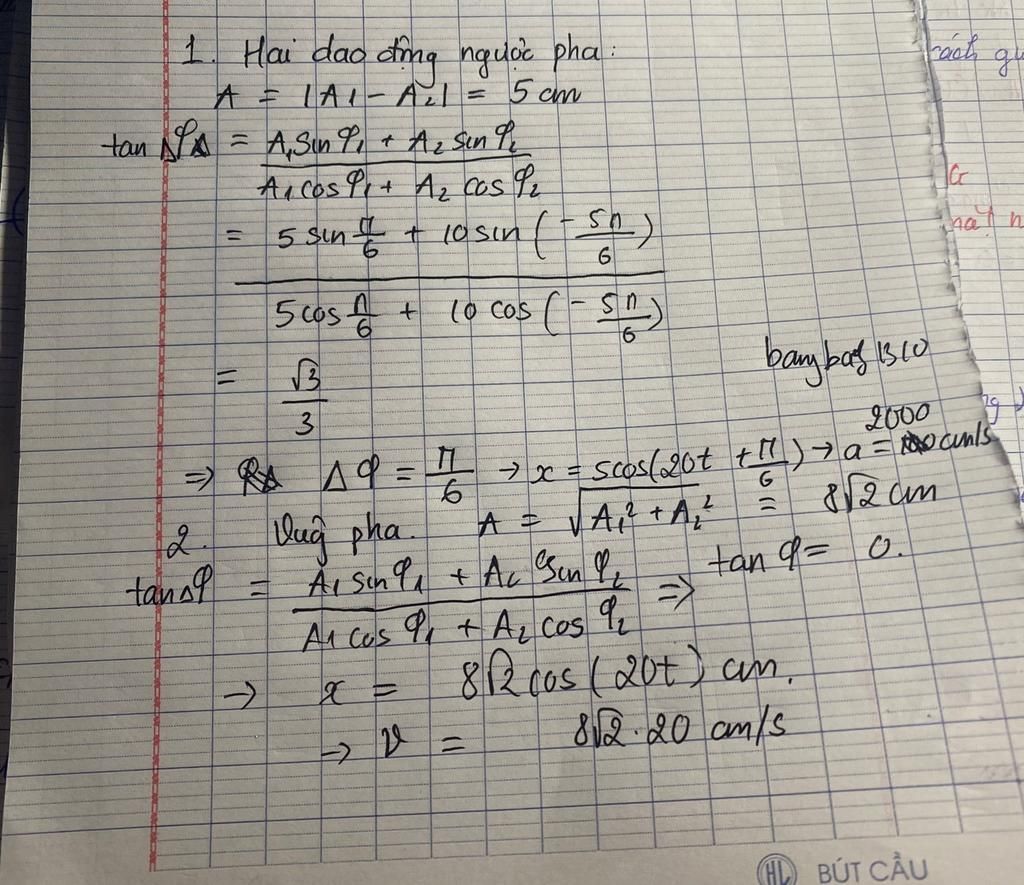 1. Hai dao động ngược pha:
A = |A1 - A2| = 5 cm
tan Δφ = A1 sin φ1 + A2 sin φ2
A1 cos φ1 + A2 cos φ2
= 5 sin π/6 + 10 sin (-5π/6)
5 cos π/6 + 10 cos (-5π/6)
= √3/3
⇒ Δφ = π/6 → x = 5cos(20t + π/6) → a = 2000 cm/s
2. Vug pha. A = √A1² + A2² = 8√2 cm
tan Δφ = A1 sin φ1 + A2 sin φ2 ⇒ tan φ = 0.
A1 cos φ1 + A2 cos φ2
→ x = 8√2 cos (20t) cm.
→ v = 8√2 . 20 cm/s
HL BÚT CẦU